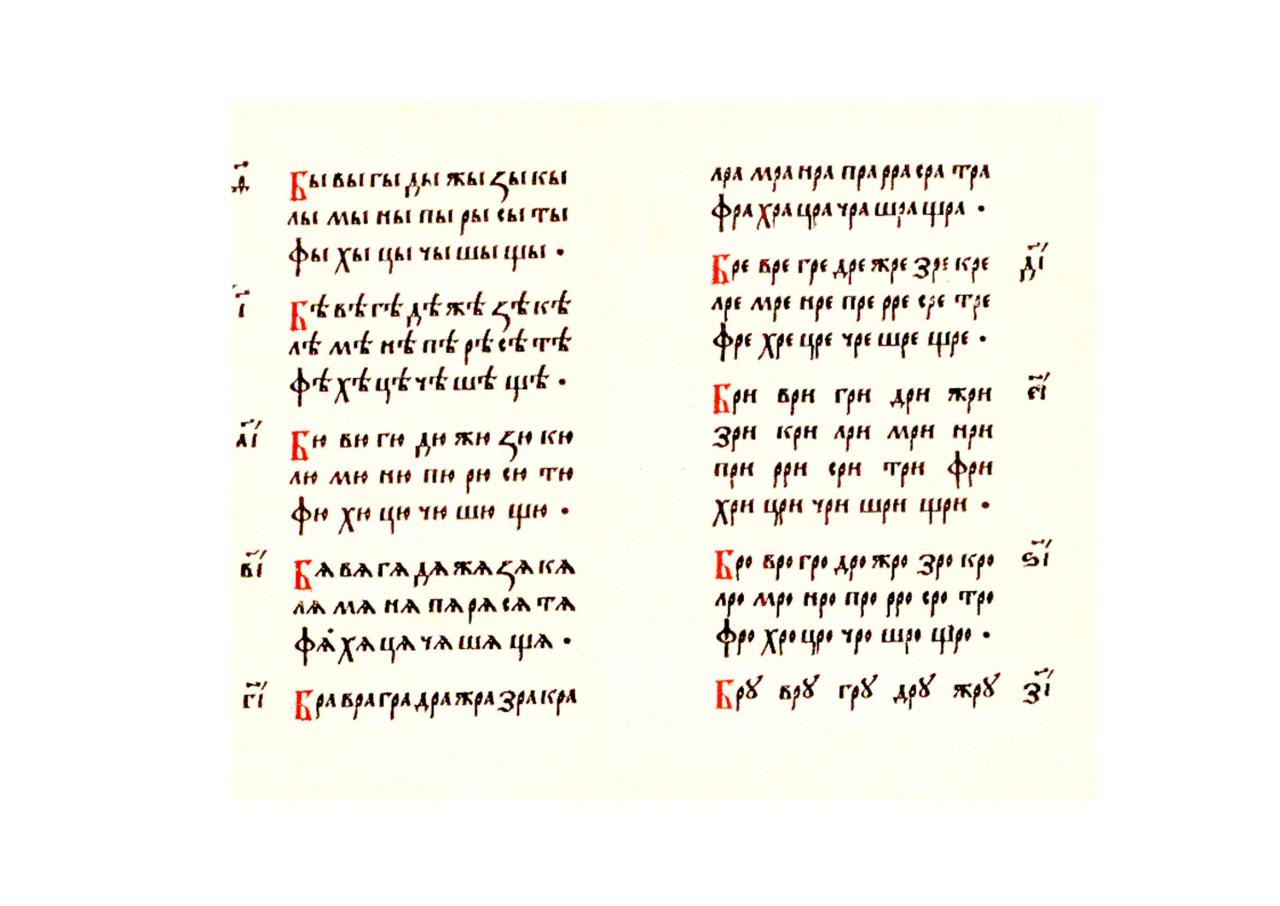 ѳ҃ Бы вы гы ды жы ꙁы кы
лы мы ны пы ры сы ты
фы хы цы чы шы щы ·
і҃ Бѣ вѣ гѣ дѣ жѣ ꙁѣ кѣ
лѣ мѣ нѣ пѣ рѣ сѣ тѣ
фѣ хѣ цѣ чѣ шѣ щѣ ·
а҃і Бю вю гю дю жю ꙁю кю
лю мю ню пю рю сю тю
фю хю цю чю шю щю ·
в҃і Бѧ вѧ гѧ дѧ жѧ ꙁѧ кѧ
лѧ мѧ нѧ пѧ рѧ сѧ тѧ
фѧ хѧ цѧ чѧ шѧ щѧ ·
г҃і Бра вра гра дра жра зра кра
лра мра нра пра рра сра тра
фра хра цра чра шра щра ·
Бре вре гре дре жре зре кре д҃і
лре мре нре пре рре сре тре
фре хре цре чре шре щре ·
Бри ври гри дри жри е҃і
зри кри лри мри нри
при рри сри три фри
хри цри чри шри щри ·
Бро вро гро дро жро зро кро ѕ҃і
лро мро нро про рро сро тро
фро хро цро чро шро щро ·
Брꙋ врꙋ грꙋ дрꙋ жрꙋ з҃і